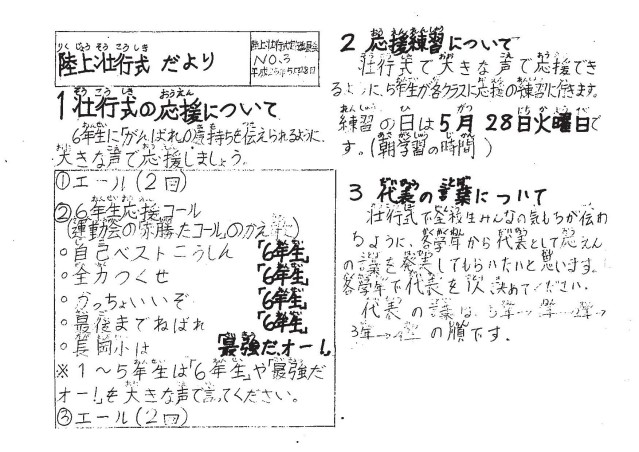 陸上壮行式 だより
陸上壮行式実行委員会
NO.3
1 壮行式の応援について
6年生に「がんばれ」の気持ちを伝えられるように、
大きな声で応援しましょう。
①エール(2回)
②6年生応援コール
(運動会の「赤勝たコール」のかえ
○自己ベストこうしん 「6年生」
○全力つくせ 「6年生」
○かっちょいいぞ 「6年生」
○最後までねばれ 「6年生」
○長岡小は 「最強だ、オー!」
※1~5年生は「6年生」や「最強だ
オー!」を大きな声で言ってください。
③エール(2回)
2 応援練習について
壮行式で大きな声で応援でき
るように、5年生が各クラスに応援の練習に行きます。
練習の日は5月28日火曜日で
す。(朝学習の時間)
3 代表の言葉について
壮行式で全校生みんなの気もちが伝わ
るように、各学年から代表として応えん
の言葉を発表してもらいたいと思います。
各学年で代表を 決めてください。
代表の言葉は、5年→
3年→ の順です。